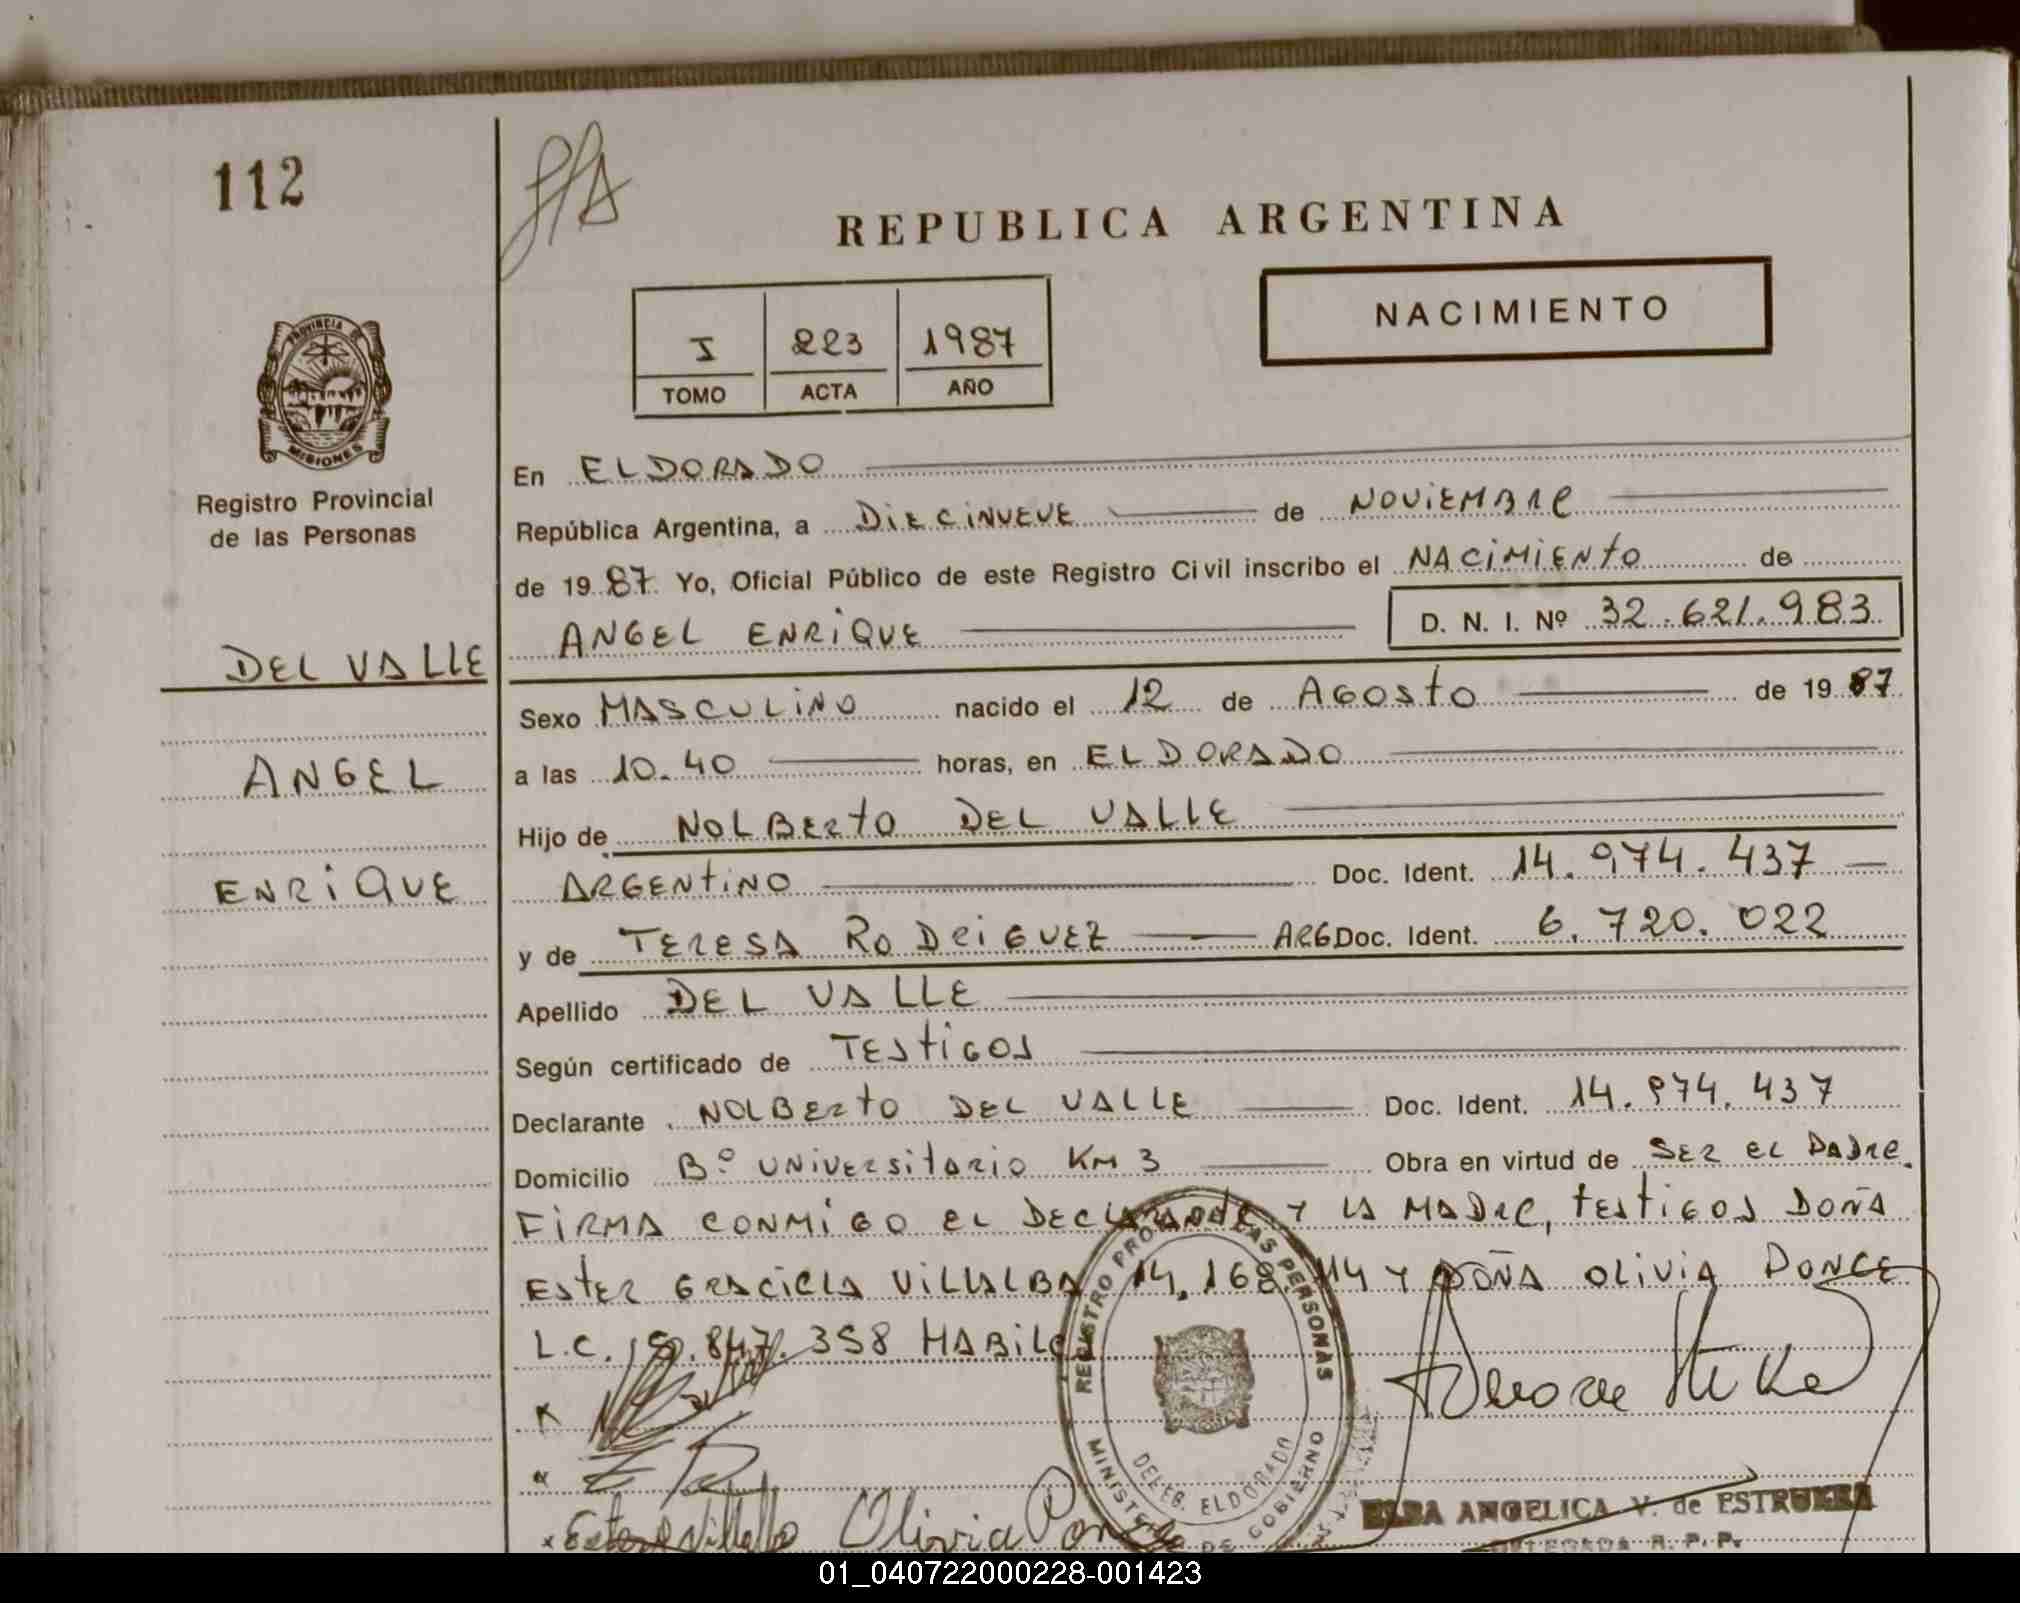 112
REPUBLICA ARGENTINA
NACIMIENTO
I 223 1987
TOMO ACTA AÑO
PROVINCIA DE
MISIONES
Registro Provincial
de las Personas
DEL VALLE
ANGEL
ENRIQUE
En ELDORADO
República Argentina, a DIECINUEVE de NOVIEMBRE
de 1987 Yo, Oficial Público de este Registro Civil inscribo el NACIMIENTO de
ANGEL ENRIQUE D. N. I. Nº 32.621.983
Sexo MASCULINO nacido el 12 de AGOSTO de 1987
a las 10.40 horas, en ELDORADO
Hijo de NOLBERTO DEL VALLE
ARGENTINO Doc. Ident. 14.974.437
y de TERESA RODRIGUEZ ARG Doc. Ident. 6.720.022
Apellido DEL VALLE
Según certificado de TESTIGOS
Declarante NOLBERTO DEL VALLE Doc. Ident. 14.974.437
Domicilio Bº UNIVERSITARIO KM 3 Obra en virtud de SER EL PADRE.
FIRMA CONMIGO EL DECLARANTE Y LA MADRE, TESTIGOS DOÑA
ESTER GRACIELA VILLALBA 14.168. Y DOÑA OLIVIA PONCE
L.C. 358 HABILES
REGISTRO PROV. DE LAS PERSONAS
MINISTERIO DE GOBIERNO
DELEG. ELDORADO
Olivia Ponce
ELBA ANGELICA V. de ESTRUKEA
DELEGADA R. P. P.
01_040722000228-001423